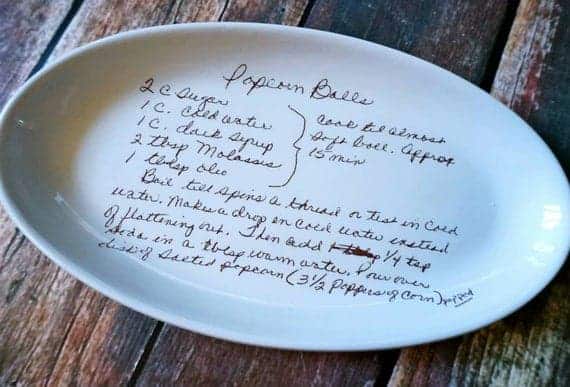 Popcorn Balls
2 C Sugar
1 C. Cold Water
1 C. dark Syrup
2 tbsp Molassis
1 tblsp oleo
Cook til almost
Soft ball. Approx
15 min
Boil till spins a thread or test in cold
water. Makes a drop in cold water instead
of flattening out. Then add 1/4 tsp
soda in a tblsp warm water. Pour over
dish of Salted popcorn (3 1/2 Poppers of Corn) popped